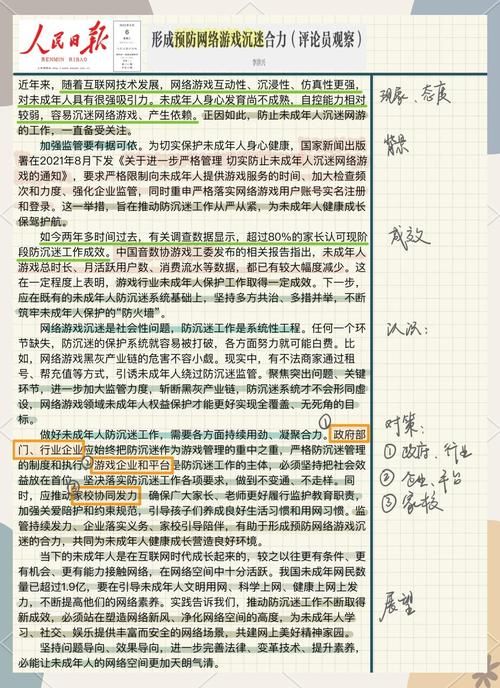 人民日报
RENMIN RIBAO
6
形成预防网络游戏沉迷合力（评论员观察）
近年来，随着互联网技术发展，网络游戏互动性、沉浸性、仿真性更强，
对未成年人具有很强吸引力。未成年人身心发育尚不成熟，自控能力相对
较弱，容易沉迷网络游戏、产生依赖。正因如此，防止未成年人沉迷网游
的工作，一直备受关注。
加强监管要有据可依。为切实保护未成年人身心健康，国家新闻出版
署在2021年8月下发《关于进一步严格管理 切实防止未成年人沉迷网络游
戏的通知》，要求严格限制向未成年人提供游戏服务的时间、加大检查频
次和力度、强化企业监管，同时重申严格落实网络游戏用户账号实名注册
和登录。这一举措，旨在推动防沉迷工作从严从紧，为未成年人健康成长
保驾护航。
如今两年多时间过去，有关调查数据显示，超过80%的家长认可现阶
段防沉迷工作成效。中国音数协游戏工委发布的相关报告指出，未成年人
游戏总时长、月活跃用户数、消费流水等数据，都已有较大幅度减少。这
在一定程度上表明，游戏行业未成年人保护工作取得一定成效。下一步，
应在既有的未成年人防沉迷系统基础上，坚持多方共治、多措并举，不断
筑牢未成年人保护的“防火墙”。
网络游戏沉迷是社会性问题，防沉迷工作是系统性工程。任何一个环
节缺失，防沉迷的保护系统就容易被打破，各方面努力就可能白费。比
如，网络游戏黑灰产业链的危害不容小觑。现实中，有不法商家通过租
号、帮充值等方式，引诱未成年人绕过防沉迷监管。聚焦突出问题、关键
环节，进一步加大监管力度，斩断黑灰产业链，防沉迷系统才不会形同虚
设，网络游戏领域未成年人权益保护才能更好实现全覆盖、无死角的目
标。
做好未成年人防沉迷工作，需要各方面持续用劲、凝聚合力。政府部
门、行业企业应始终把防沉迷作为游戏管理的重中之重，严格防沉迷管理
的制度和执行。游戏企业和平台是防沉迷工作的主体，必须坚持把社会效
益放在首位，坚决落实防沉迷工作各项要求，做到不变通、不走样。同
时，应推动家校协同发力，确保广大家长、老师更好履行监护教育职责，
加强关爱陪护和约束规范，引导孩子们养成良好生活习惯和用网习惯。监
管持续发力、企业落实义务、家校引导陪伴，有助于形成预防网络游戏沉
迷的合力，共同为未成年人健康成长营造良好环境。
当下的未成年人是在互联网时代成长起来的，较之以往更有条件、更
有机会、更有能力接触网络，在网络空间中十分活跃。我国未成年网民数
量已超过1.9亿，要在引导未成年人文明用网、科学上网、健康上网上发
力，不断提高他们的网络素养。实践告诉我们，推动防沉迷工作不断取得
新成效，必须站在塑造网络新风、净化网络空间的高度，为未成年人学
习、社交、娱乐提供丰富而安全的网络场景，共建网上美好精神家园。
坚持问题导向、效果导向，进一步完善法律、变革技术、提升素养，
必能让未成年人的网络空间更加天朗气清。
现象、态度
背景
成效
认识：
对策：
① 政府、行业
② 企业、平台
③ 家校
展望